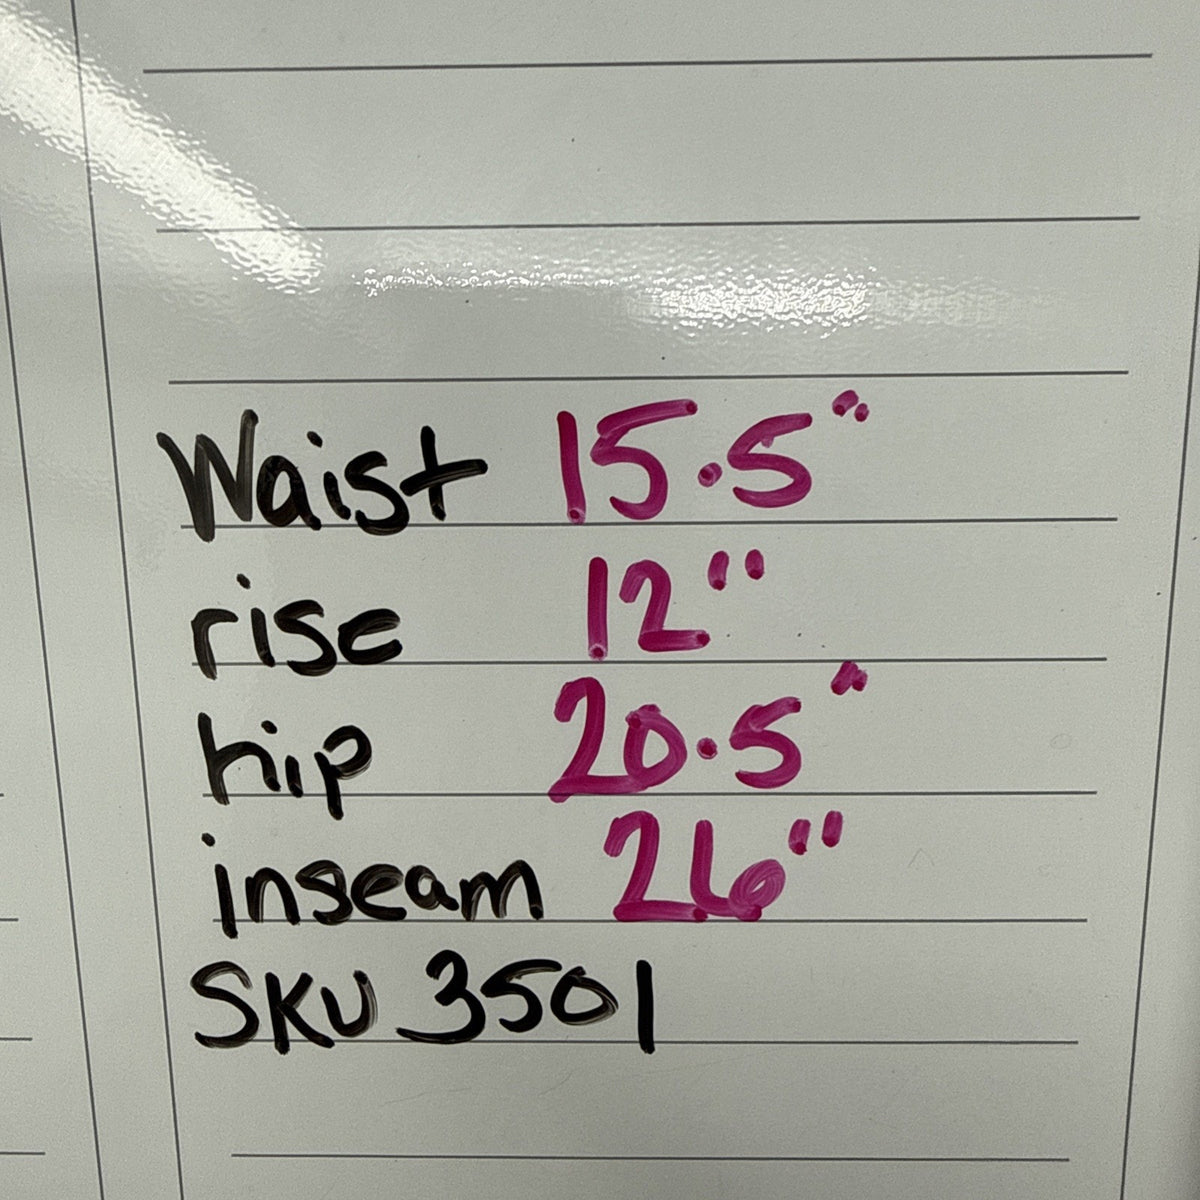 Waist 15.5"
rise 12"
hip 20.5"
inseam 26"
SKU 3501